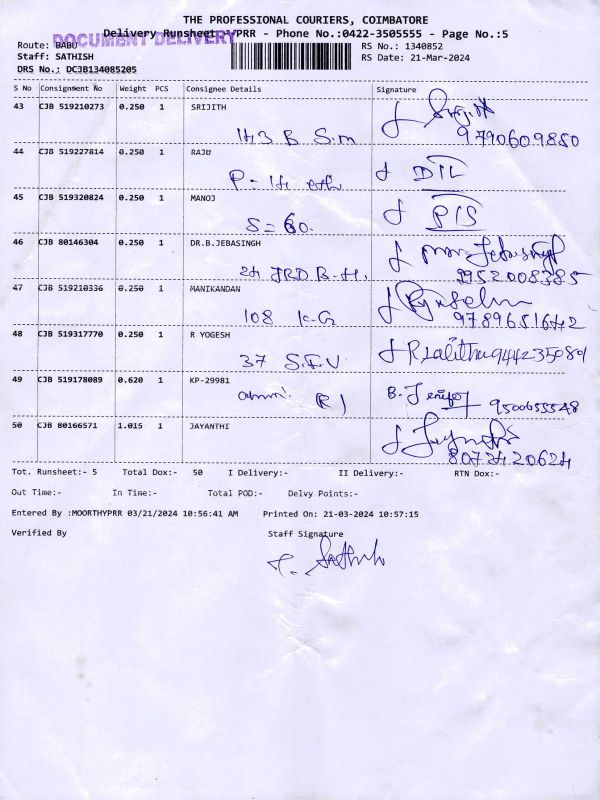 THE PROFESSIONAL COURIERS, COIMBATORE
Delivery Runsheet PRR - Phone No.:0422-3505555 - Page No.:5
DOCUMENT DELIVERY
Route: BABU RS No.: 1340852
Staff: SATHISH RS Date: 21-Mar-2024
DRS No.: DCJB134085205
S No Consignment No Weight PCS Consignee Details Signature
43 CJB 519210273 0.250 1 SRIJITH
143 B S.m 9790609880
44 CJB 519227814 0.250 1 RAJU
DTL
45 CJB 519320824 0.250 1 MANOJ
PIS
46 CJB 80146304 0.250 1 DR.B.JEBASINGH
24 JRD B-H. 9952008385
47 CJB 519210336 0.250 1 MANIKANDAN
108 K-G 9789651642
48 CJB 519317770 0.250 1 R YOGESH
37 R.Lalitha 9442350891
49 CJB 519178089 0.620 1 KP-29981
B. 9500655548
50 CJB 80166571 1.015 1 JAYANTHI
8073420624
Tot. Runsheet:- 5 Total Dox:- 50 I Delivery:- II Delivery:- RTN Dox:-
Out Time:- In Time:- Total POD:- Delvy Points:-
Entered By :MOORTHYPRR 03/21/2024 10:56:41 AM Printed On: 21-03-2024 10:57:15
Verified By Staff Signature